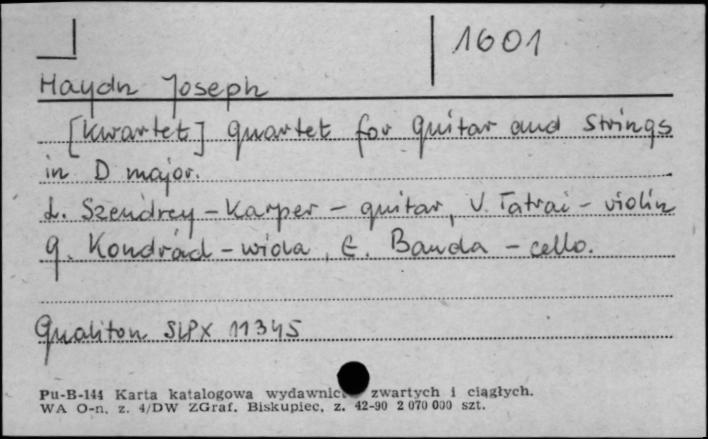 1601
Haydn Joseph
[Kwartet] Quartet for Guitar and Strings
in D major.
L. Szendrey-Karper - guitar, V. Tatrai - violin
G. Kondrád - wiola, E. Banda - cello.
Qualiton SLPX 11345
Pu-B-144 Karta katalogowa wydawnic zwartych i ciągłych.
WA O-n. z. 4/DW ZGraf. Biskupiec, z. 42-90 2 070 000 szt.